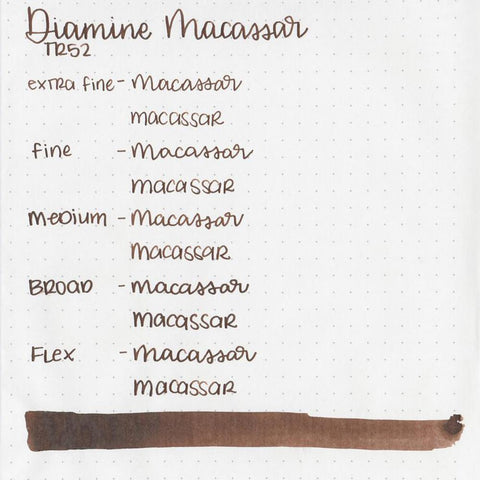 Diamine Macassar
TR52
extra fine - Macassar
macassar
fine - Macassar
macassar
medium - Macassar
macassar
Broad - macassar
macassar
Flex - Macassar
macassar